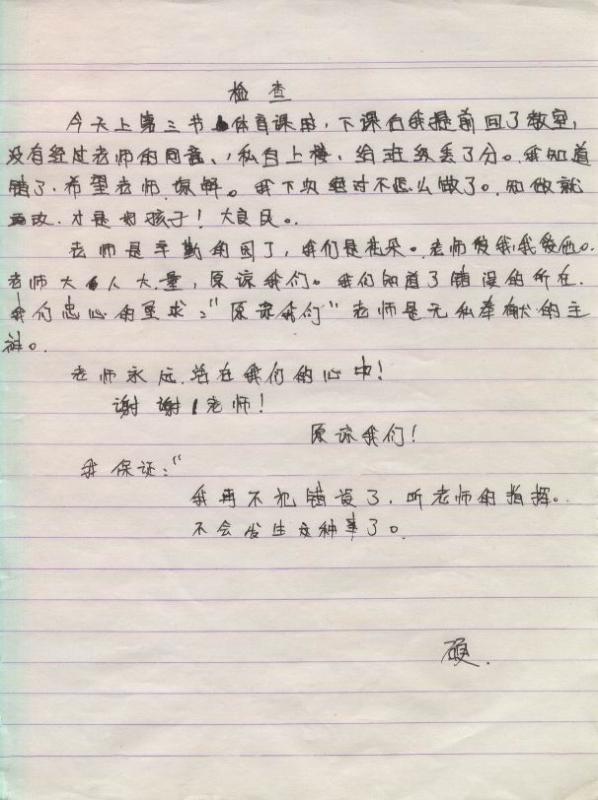 检查
今天上第三节体育课时，下课后我提前回了教室，
没有经过老师的同意、，私自上楼，给班级丢了分。我知道
错了，希望老师 原解。我下次绝过不怎么做了。知做就
改，才是好孩子！大良民。
老师是辛勤的园丁，我们是花朵。老师爱我，我爱他。
老师大人大量，原谅我们。我们知道了错误的所在.
我们忠心的垦求：“原谅我们”老师是无私奉献的主
裤。
老师永远 活在我们的心中！
谢谢老师！
原谅我们！
我保证：“
我再不犯错误了，听老师的指挥。
不会发生这种事了。
硕.